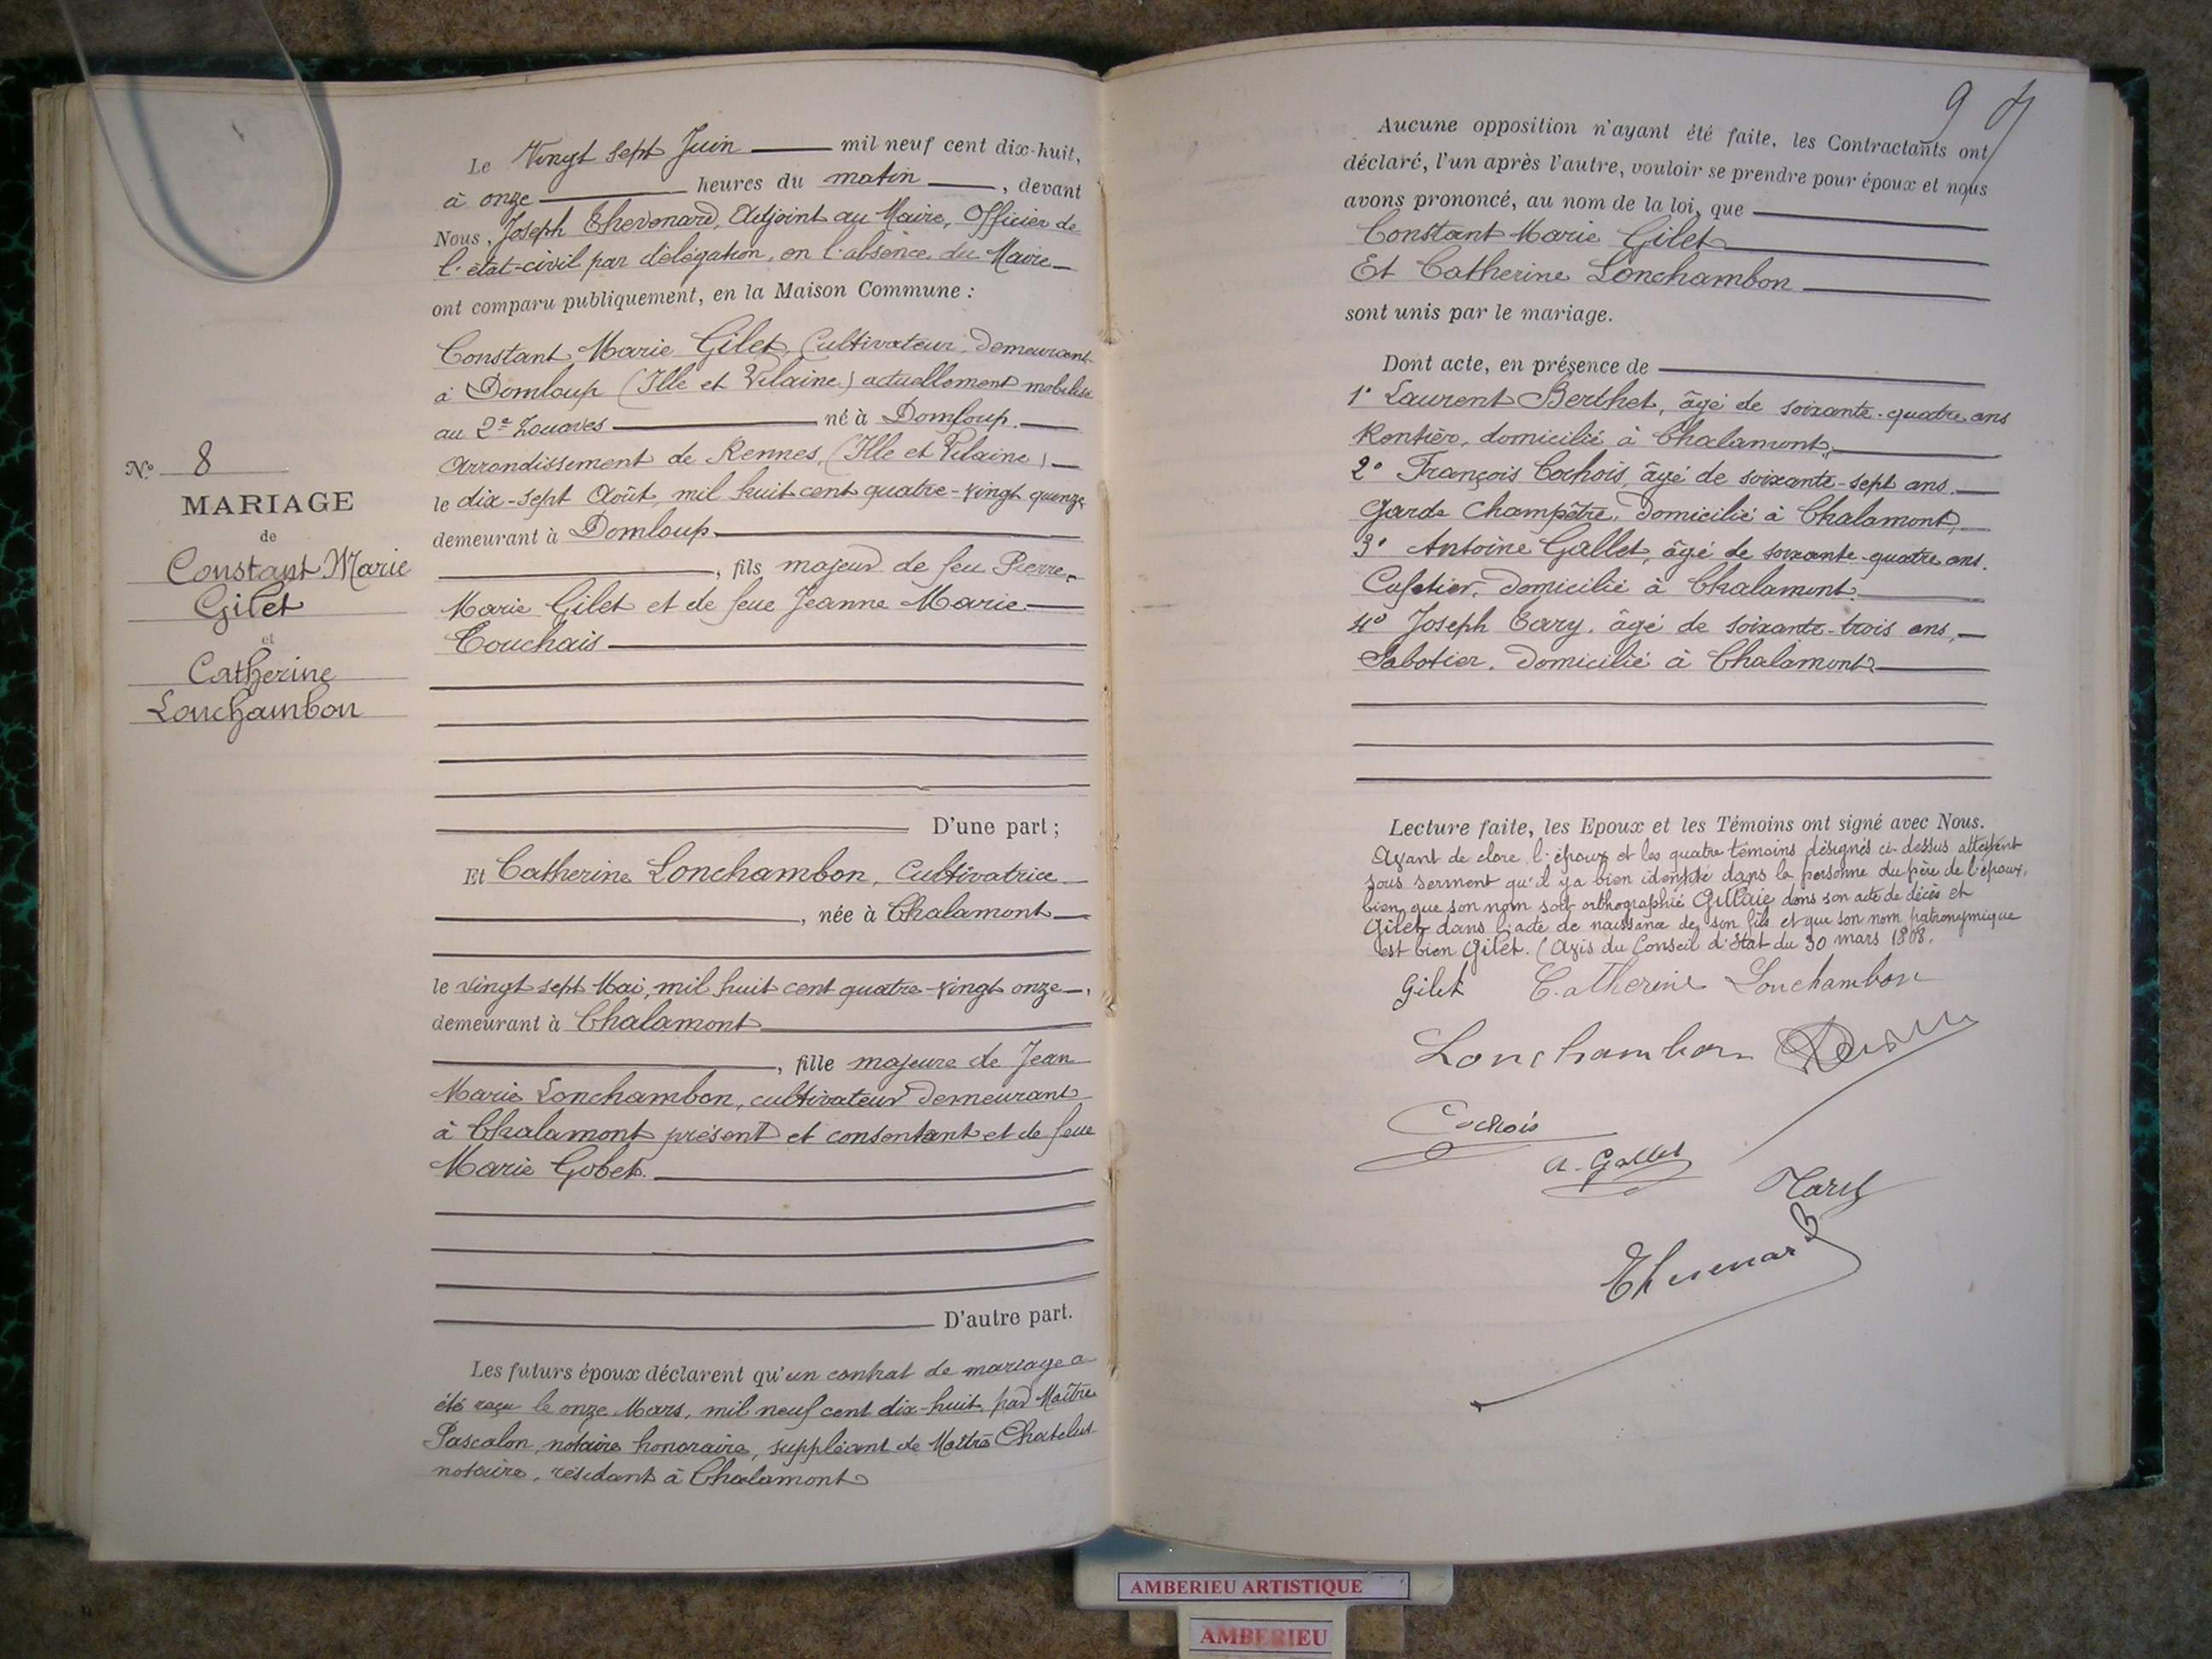 N° 8
MARIAGE
de
Constant Marie
Gilet
et
Catherine
Lonchambon
Le Vingt sept Juin mil neuf cent dix-huit,
à onze heures du matin, devant
Nous, Joseph Thevenard, Adjoint au Maire, Officier de
l'état-civil par délégation, en l'absence du Maire
ont comparu publiquement, en la Maison Commune :
Constant Marie Gilet, Cultivateur, demeurant
à Domloup (Ille et Vilaine) actuellement mobilisé
au 2e Zouaves né à Domloup.
Arrondissement de Rennes, (Ille et Vilaine)
le dix-sept Août, mil huit cent quatre-vingt quinze
demeurant à Domloup
, fils majeur de feu Pierre
Marie Gilet et de feue Jeanne Marie
Touchais
D'une part ;
Et Catherine Lonchambon, Cultivatrice
, née à Chalamont
le vingt sept Mai, mil huit cent quatre-vingt onze,
demeurant à Chalamont
, fille majeure de Jean
Marie Lonchambon, cultivateur demeurant
à Chalamont présent et consentant et de feue
Marie Gobet.
D'autre part.
Les futurs époux déclarent qu'un contrat de mariage a
été reçu le onze Mars, mil neuf cent dix-huit, par Maître
Pascalon, notaire honoraire, suppléant de Maître Chatelus
notaire, résidant à Chalamont
9
Aucune opposition n'ayant été faite, les Contractants ont
déclaré, l'un après l'autre, vouloir se prendre pour époux et nous
avons prononcé, au nom de la loi, que
Constant Marie Gilet
Et Catherine Lonchambon
sont unis par le mariage.
Dont acte, en présence de
1° Laurent Berthet, âgé de soixante-quatre ans
Rentier, domicilié à Chalamont,
2° François Cochois, âgé de soixante-sept ans,
Garde Champêtre, domicilié à Chalamont,
3° Antoine Gallet, âgé de soixante-quatre ans.
Cafetier, domicilié à Chalamont.
4° Joseph Tary, âgé de soixante-trois ans,
Sabotier, domicilié à Chalamont
Lecture faite, les Epoux et les Témoins ont signé avec Nous.
Avant de clore, l'époux et les quatre témoins désignés ci-dessus attestent
sous serment qu'il y a bien identité dans la personne du père de l'époux,
bien que son nom soit orthographié Gillaie dans son acte de décès et
Gilet dans l'acte de naissance de son fils et que son nom patronymique
est bien Gilet. (Avis du Conseil d'Etat du 30 mars 1808.
Gilet Catherine Lonchambon
Lonchambon
Cochois
A. Gallet
Tary
Thevenard
AMBERIEU ARTISTIQUE
AMBERIEU